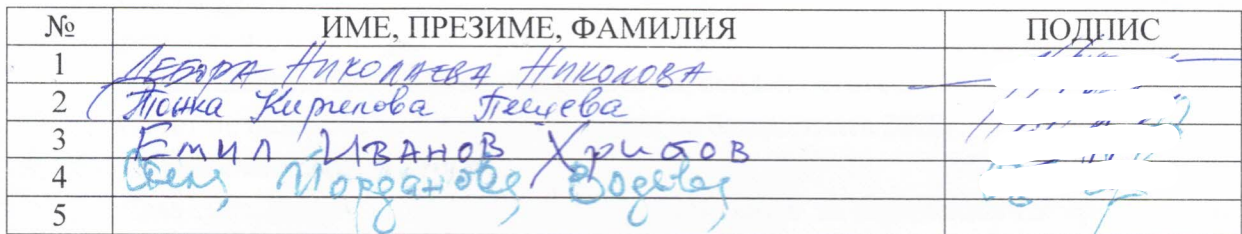 № ИМЕ, ПРЕЗИМЕ, ФАМИЛИЯ ПОДПИС
1 ДЕБОРА НИКОЛАЕВА НИКОЛОВА
2 Тонка Кирилова
3 ЕМИЛ ИВАНОВ Христов
4 Йорданова
5